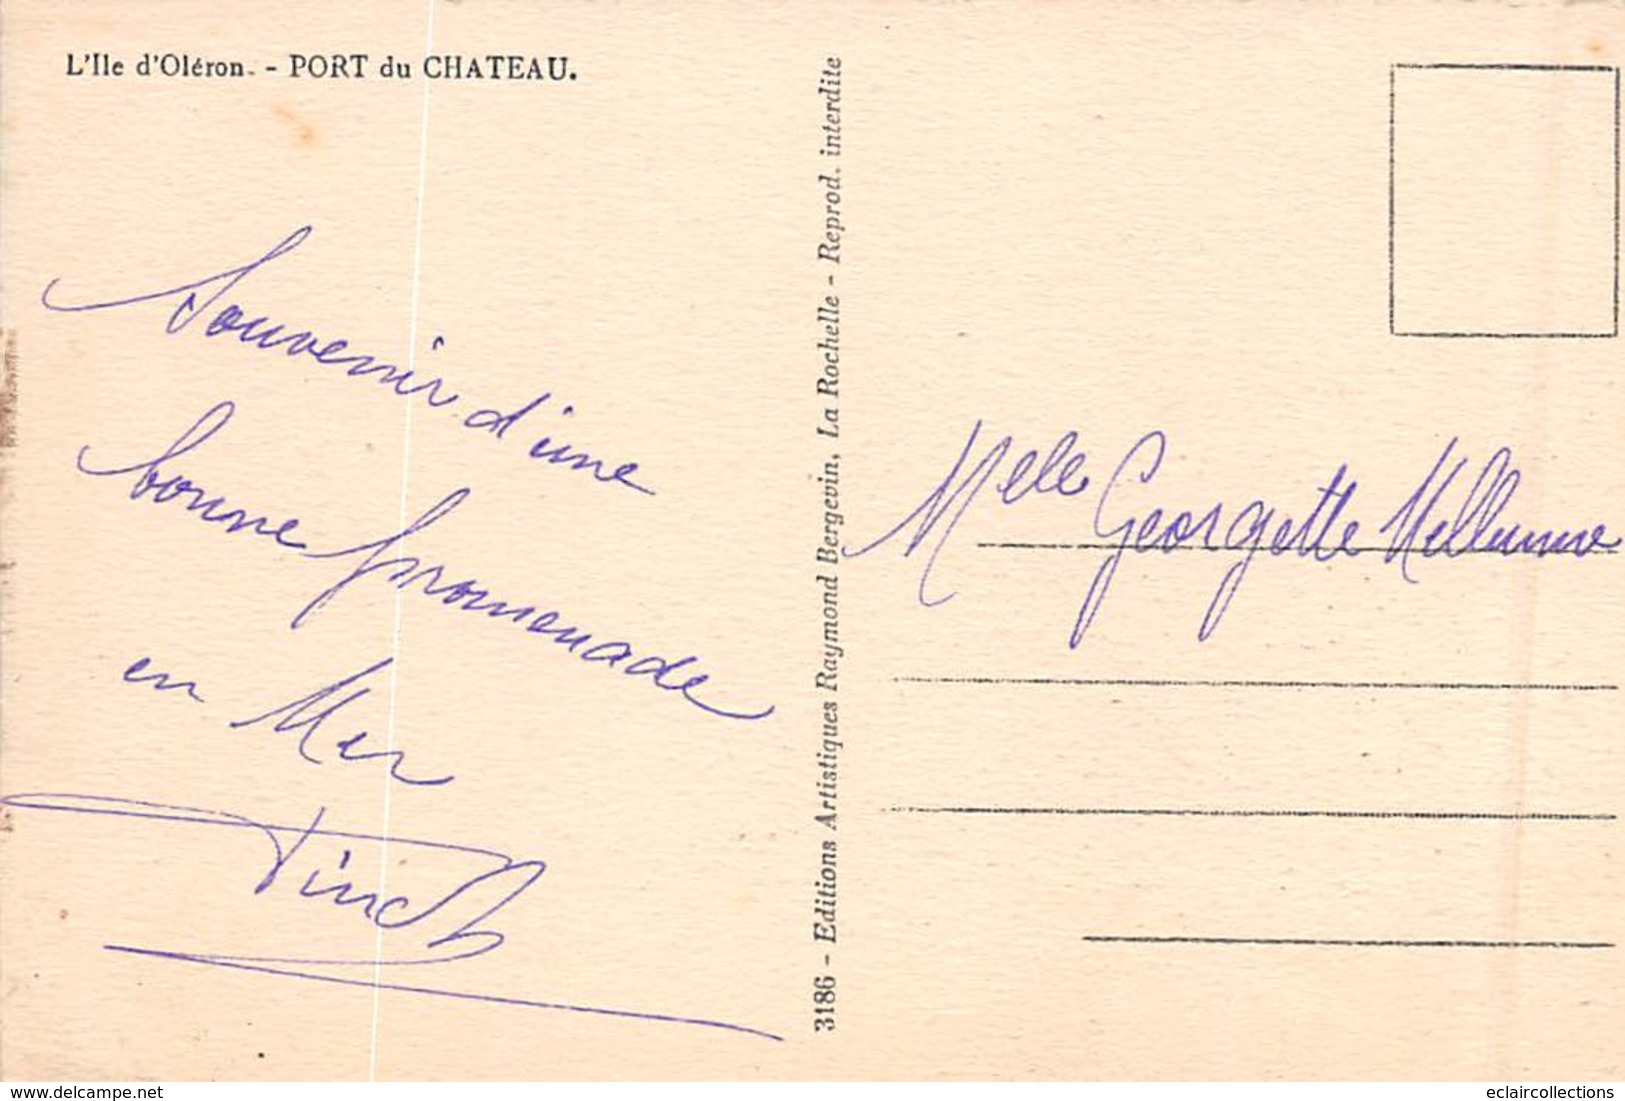 L'Ile d'Oléron. - PORT du CHATEAU.
Souvenir d'une
bonne promenade
en Mer
3186 - Editions Artistiques Raymond Bergevin, La Rochelle - Reprod. interdite
Melle Georgette
www.delcampe.net
eclaircollections